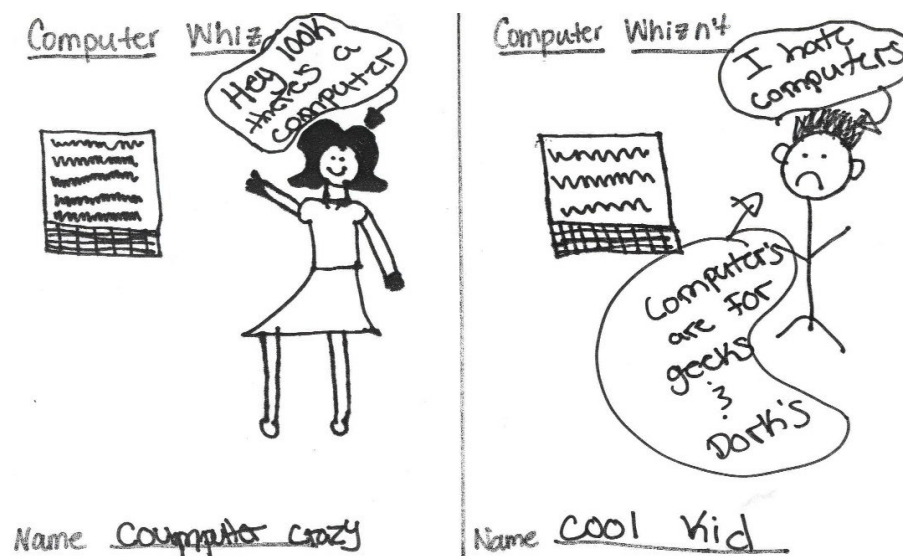 Computer Whiz
Hey look
there's a
computer
Name Coumputer crazy
Computer Whizn't
I hate
computers
Computer's
are for
geeks
&
Dork's
Name cool kid